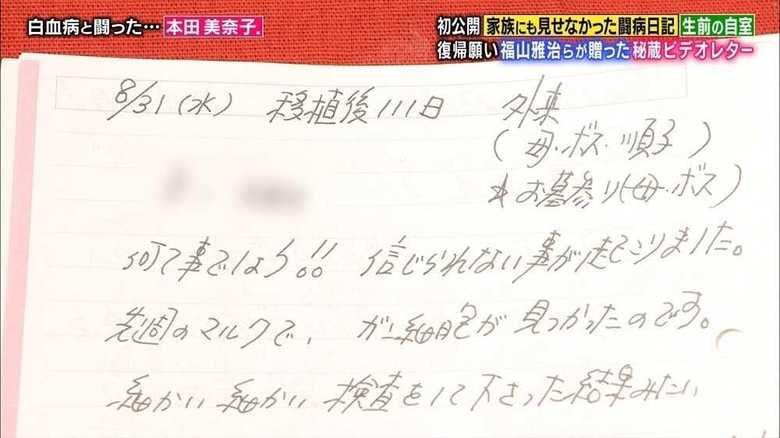 白血病と闘った… 本田 美奈子.
初公開 家族にも見せなかった闘病日記 生前の自室
復帰願い 福山雅治らが贈った 秘蔵ビデオレター
8/31(水) 移植後111日 外来
(母・ボス・順子)
お墓参り(母・ボス)
何て事でしょう!! 信じられない事が起こりました。
先週のマルクで、ガン細胞が見つかったのです。
細かい細かい検査をして下さった結果みたい